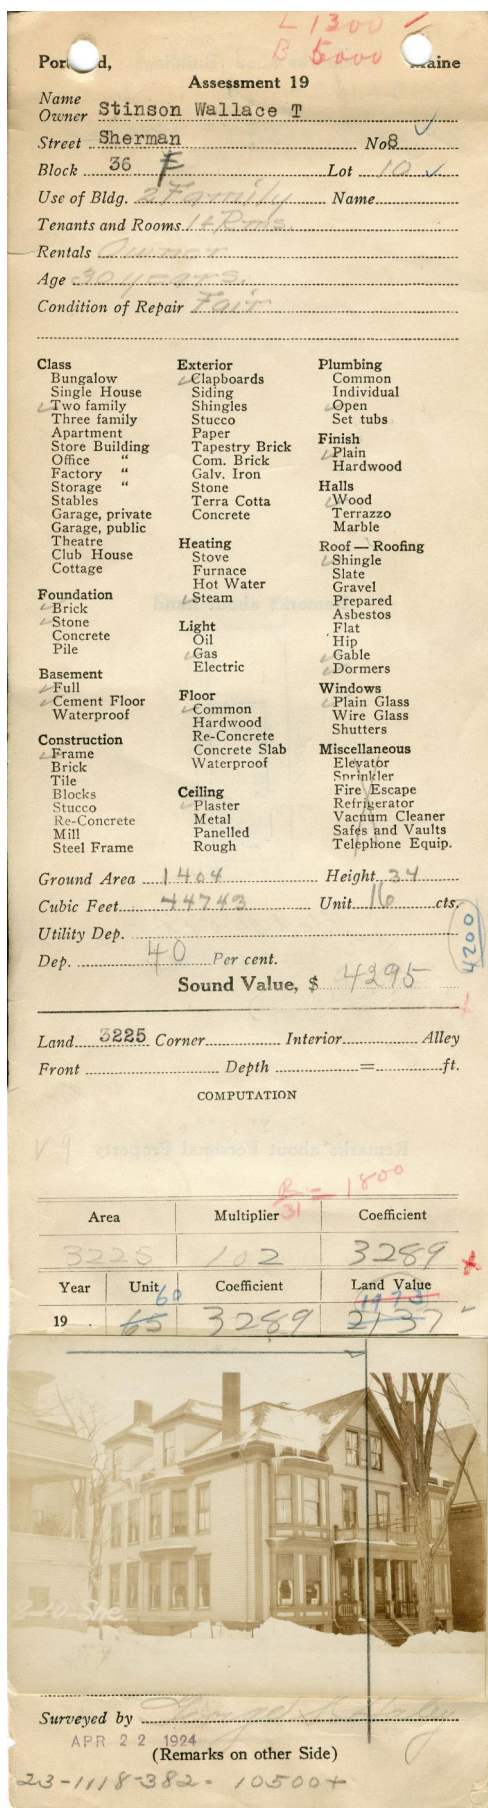 L 1300
B 5000
Portland, Maine
Assessment 19
Name
Owner Stinson Wallace T
Street Sherman No 8
Block 36 F Lot 10
Use of Bldg. 2 Family Name
Tenants and Rooms 14 Rms.
Rentals Owner
Age 30 years.
Condition of Repair Fair
Class
Bungalow
Single House
Two family
Three family
Apartment
Store Building
Office "
Factory "
Storage "
Stables
Garage, private
Garage, public
Theatre
Club House
Cottage
Foundation
Brick
Stone
Concrete
Pile
Basement
Full
Cement Floor
Waterproof
Construction
Frame
Brick
Tile
Blocks
Stucco
Re-Concrete
Mill
Steel Frame
Exterior
Clapboards
Siding
Shingles
Stucco
Paper
Tapestry Brick
Com. Brick
Galv. Iron
Stone
Terra Cotta
Concrete
Heating
Stove
Furnace
Hot Water
Steam
Light
Oil
Gas
Electric
Floor
Common
Hardwood
Re-Concrete
Concrete Slab
Waterproof
Ceiling
Plaster
Metal
Panelled
Rough
Plumbing
Common
Individual
Open
Set tubs
Finish
Plain
Hardwood
Halls
Wood
Terrazzo
Marble
Roof — Roofing
Shingle
Slate
Gravel
Prepared
Asbestos
Flat
Hip
Gable
Dormers
Windows
Plain Glass
Wire Glass
Shutters
Miscellaneous
Elevator
Sprinkler
Fire Escape
Refrigerator
Vacuum Cleaner
Safes and Vaults
Telephone Equip.
Ground Area 1404 Height 34
Cubic Feet 44743 Unit 16 cts.
Utility Dep.
4200
Dep. 40 Per cent.
Sound Value, $ 4295
Land 3225 Corner Interior Alley
Front Depth = ft.
COMPUTATION
B/31 = 1800
Area Multiplier Coefficient
3225 102 3289
Year Unit Coefficient Land Value
60 1973
19 . 65 3289 2137
8-10-She
Surveyed by
APR 22 1924
(Remarks on other Side)
23-1118-382- 10500+